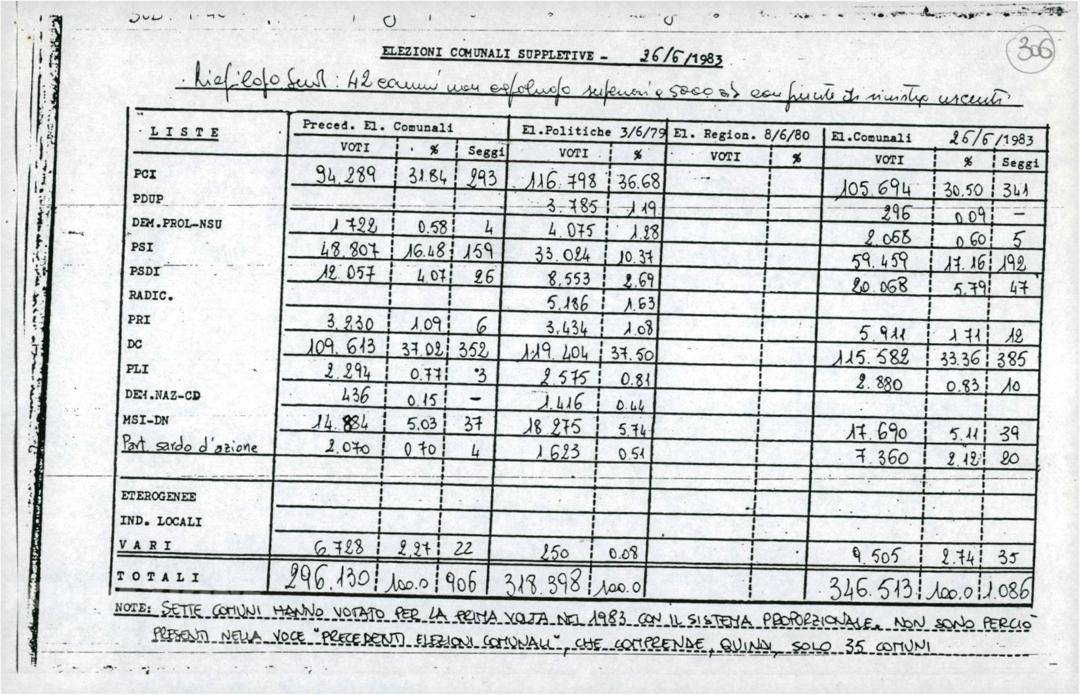 306
ELEZIONI COMUNALI SUPPLETIVE - 26/6/1983
Riepilogo Sud: 42 comuni non capoluogo superiori a 5000 ab con giunte di sinistra uscenti
LISTE Preced. El. Comunali El.Politiche 3/6/79 El. Region. 8/6/80 El.Comunali 26/6/1983
VOTI % Seggi VOTI % VOTI % VOTI % Seggi
PCI 94.289 31.84 293 116.798 36.68 105.694 30.50 341
PDUP 3.785 1.19 296 0.09 -
DEM.PROL-NSU 1722 0.58 4 4.075 1.28 2.068 0.60 5
PSI 48.807 16.48 159 33.024 10.37 59.459 17.16 192
PSDI 12.057 4.07 26 8.553 2.69 20.068 5.79 47
RADIC. 5.186 1.63
PRI 3.230 1.09 6 3.434 1.08 5.911 1.71 12
DC 109.613 37.02 352 119.404 37.50 115.582 33.36 385
PLI 2.294 0.77 3 2.575 0.81 2.880 0.83 10
DEM.NAZ-CD 436 0.15 - 1.416 0.44
MSI-DN 14.884 5.03 37 18275 5.74 17.690 5.11 39
Part. sardo d'azione 2.070 0.70 4 1623 0.51 7.360 2.12 20
ETEROGENEE
IND. LOCALI
VARI 6.728 2.27 22 250 0.08 9.505 2.74 35
TOTALI 296.130 100.0 906 318.398 100.0 346.513 100.0 1.086
NOTE: SETTE COMUNI HANNO VOTATO PER LA PRIMA VOLTA NEL 1983 CON IL SISTEMA PROPORZIONALE. NON SONO PERCIÒ
PRESENTI NELLA VOCE "PRECEDENTI ELEZIONI COMUNALI", CHE COMPRENDE, QUINDI, SOLO 35 COMUNI